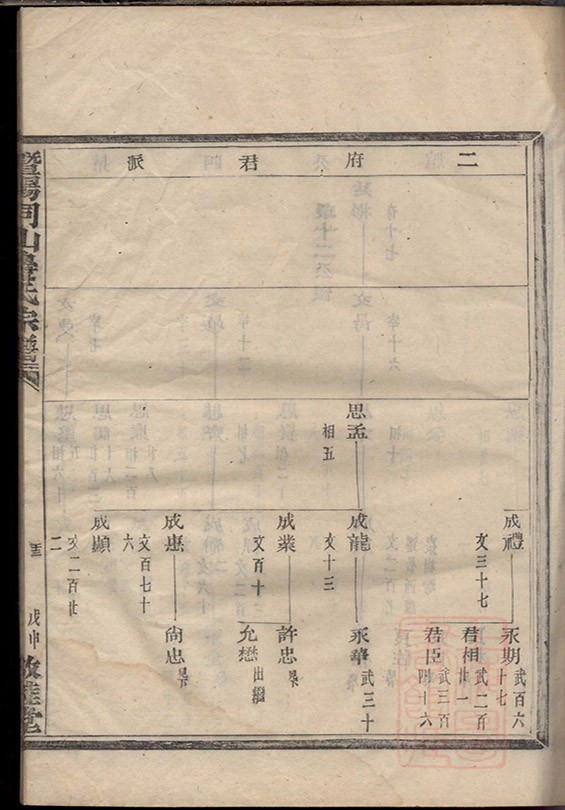 二府君派
成禮
文三十七
永期
武百六十七
君相
武二百廿一
君臣
武三百四十六
思孟
相五
成龍
文十三
永華
武三十
成業
文百十二
許忠
允懋
出繼
成惠
文百七十六
尚忠
成顯
文二百廿二
暨陽同山壽氏宗譜
戊申
敦睦堂